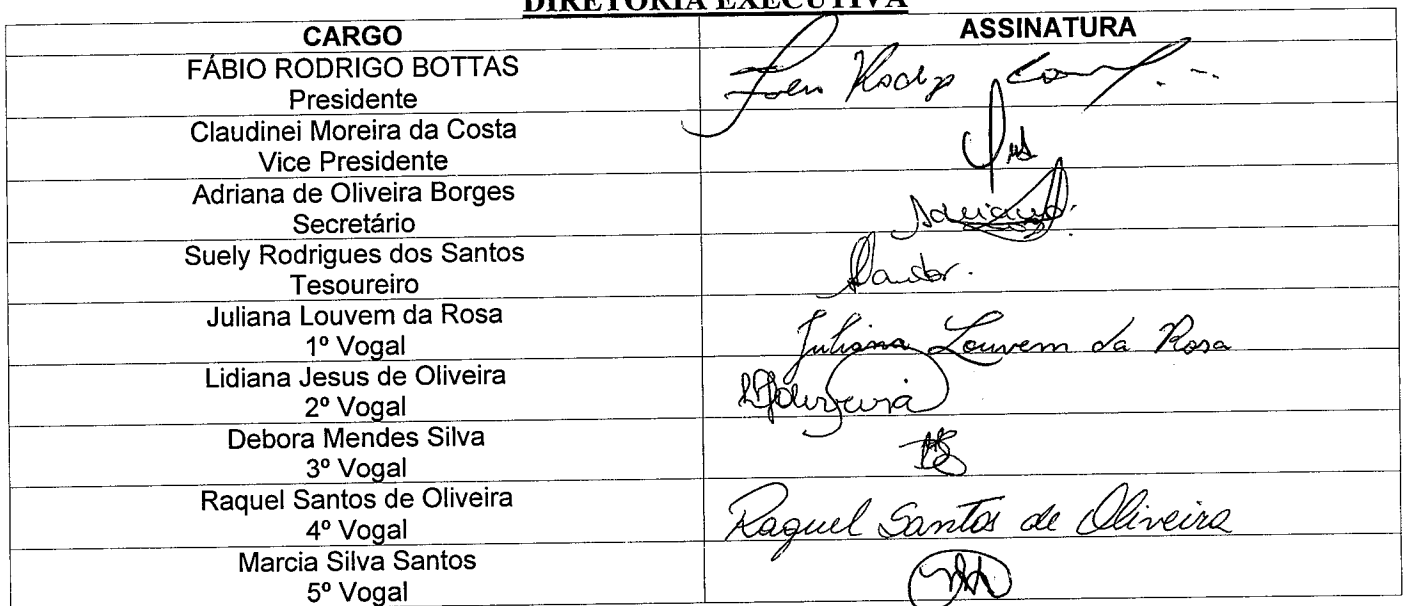 DIRETORIA EXECUTIVA
CARGO
ASSINATURA
FÁBIO RODRIGO BOTTAS
Presidente
Claudinei Moreira da Costa
Vice Presidente
Adriana de Oliveira Borges
Secretário
Adriana
Suely Rodrigues dos Santos
Tesoureiro
Juliana Louvem da Rosa
1º Vogal
Juliana Louvem da Rosa
Lidiana Jesus de Oliveira
2º Vogal
Debora Mendes Silva
3º Vogal
Raquel Santos de Oliveira
4º Vogal
Raquel Santos de Oliveira
Marcia Silva Santos
5º Vogal